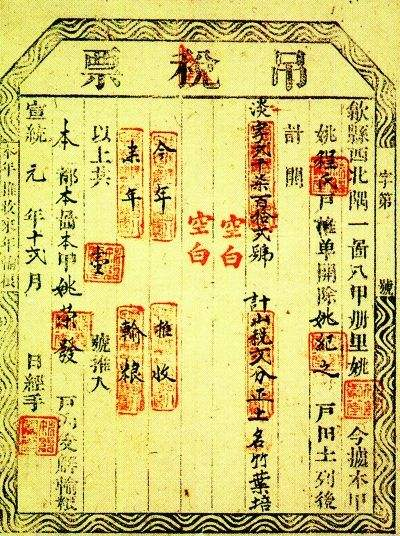 吊稅票
歙縣西北隅一啚八甲册里姚 今據本甲
姚程氏戶推单開除姚紀之 戶田土列後
計開
淡字列千柒百拾弍號 計山稅 分正土名竹葉培
空白
空白
今年 推收
來年 輸粮
以上共 壹 號推入
本 都本啚本甲姚榮發 戶 輸粮
宣統 元 年十弍月 日經手
字第 號
本年推收來年輸粮